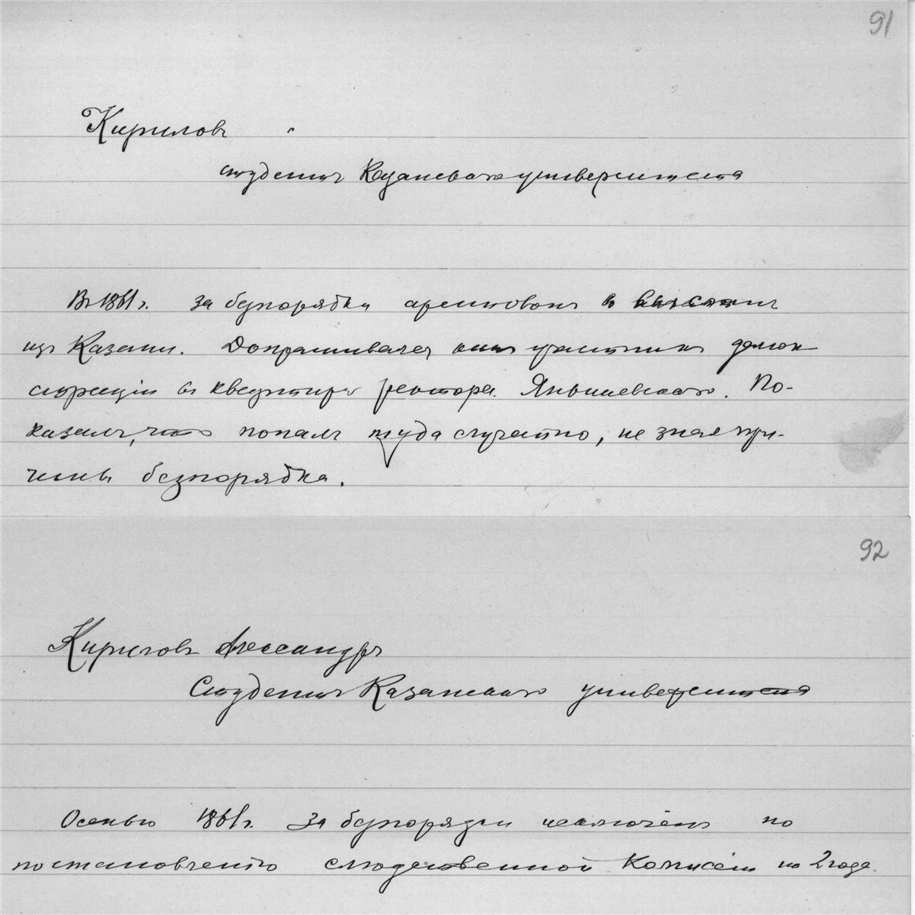 91
Кириловъ
студентъ Казанскаго университета
Въ 1861 г. за безпорядки арестованъ и высланъ
изъ Казани. Допрашивался какъ участникъ демон-
страціи въ квартирѣ ректора Янишевскаго. По-
казалъ, что попалъ туда случайно, не зная при-
чины безпорядка.
92
Кириловъ Александръ
Студентъ Казанскаго университета
Осенью 1861 г. за безпорядки исключенъ по
постановленію следственной Комисіи на 2 года.